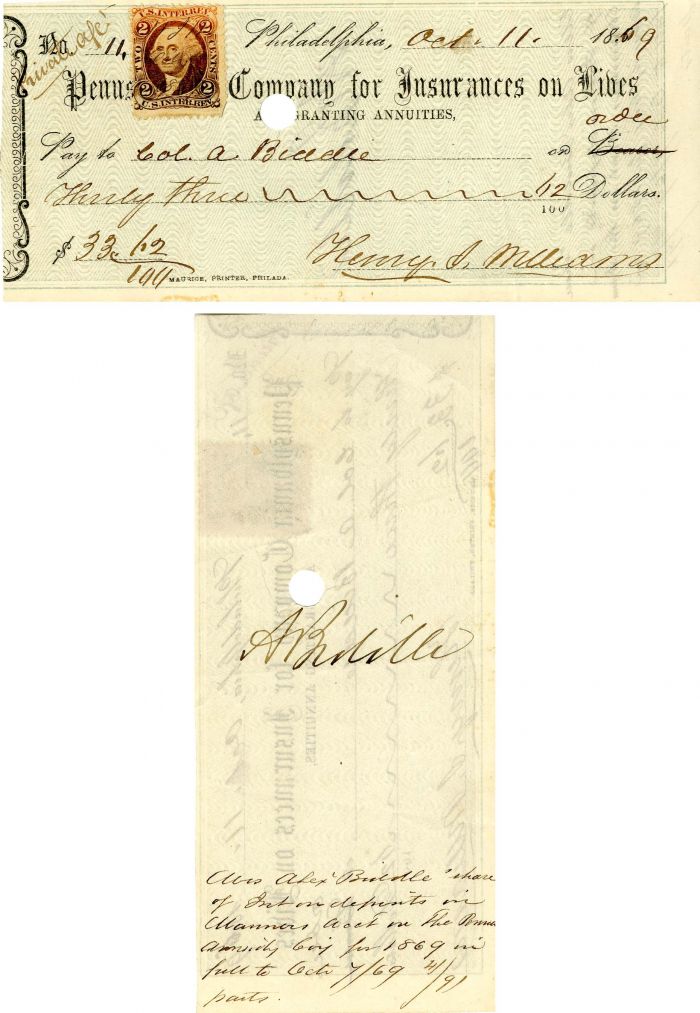 No. 11. Philadelphia, Oct. 11. 1869
Private a/c
U.S. INTER. REV.
2 2
TWO CENTS
2 2
U.S. INTER. REV.
Penns Company for Insurances on Lives
A GRANTING ANNUITIES,
order
Pay to Col. A Biddle or Bearer,
Thirty three 12 Dollars.
100
$ 33. 12
100
MAURICE, PRINTER, PHILADA.
Henry J. Williams
ABiddle
Mrs Alex Biddle's share
of Int on deposits in
Manners Acct in The Penna
Annuity Coy for 1869 in
full to Octr 7/69 4/91
parts.